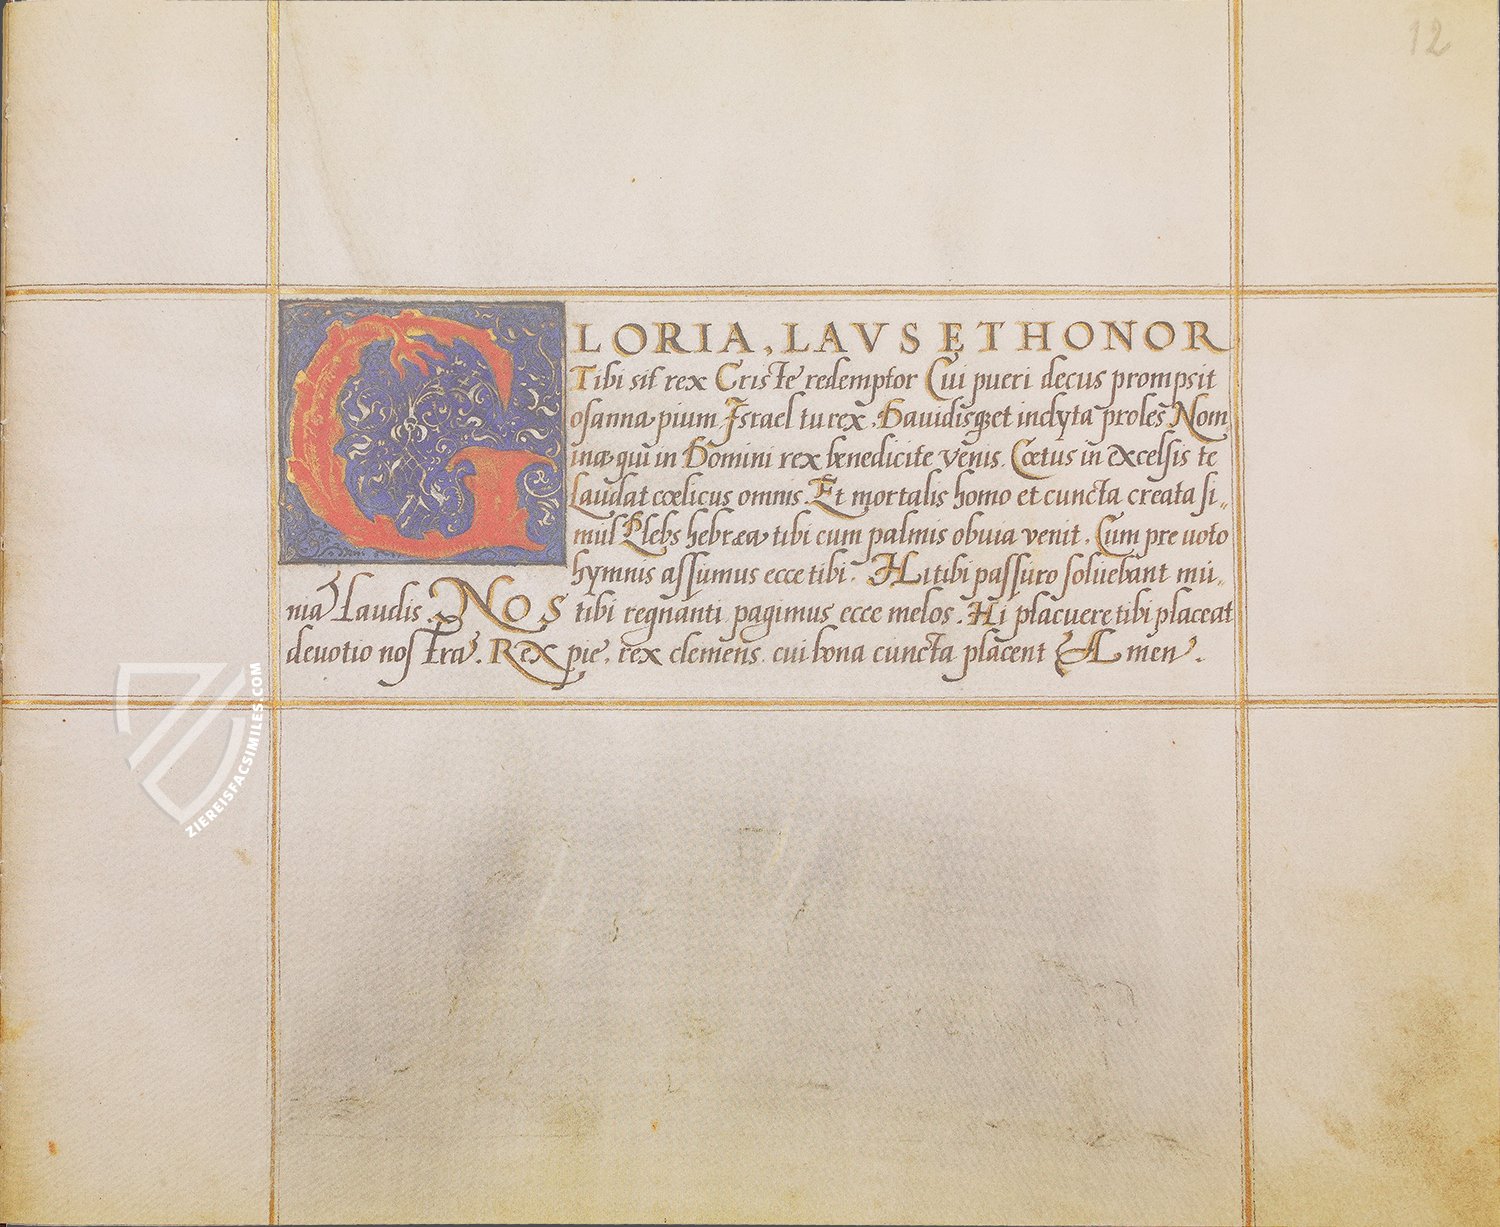 12
GLORIA, LAVS ET HONOR
Tibi sit rex Criste redemptor Cui pueri decus prompsit
osanna pium. Israel tu rex. Dauidisq; et inclyta proles Nom
inæ qui in Domini rex benedicite venis. Cœtus in excelsis te
Laudat cœlicus omnis. Et mortalis homo et cuncta creata si„
mul Plebs hebræa tibi cum palmis obuia venit. Cum pre uoto
hymnis assumus ecce tibi. Hi tibi passuro soluebant mu„
nia Laudis. NOS tibi regnanti pagimus ecce melos. Hi placuere tibi placeat
deuotio nostra. Rex pie, rex clemens cui bona cuncta placent Amen.
ZIEREISFACSIMILES.COM